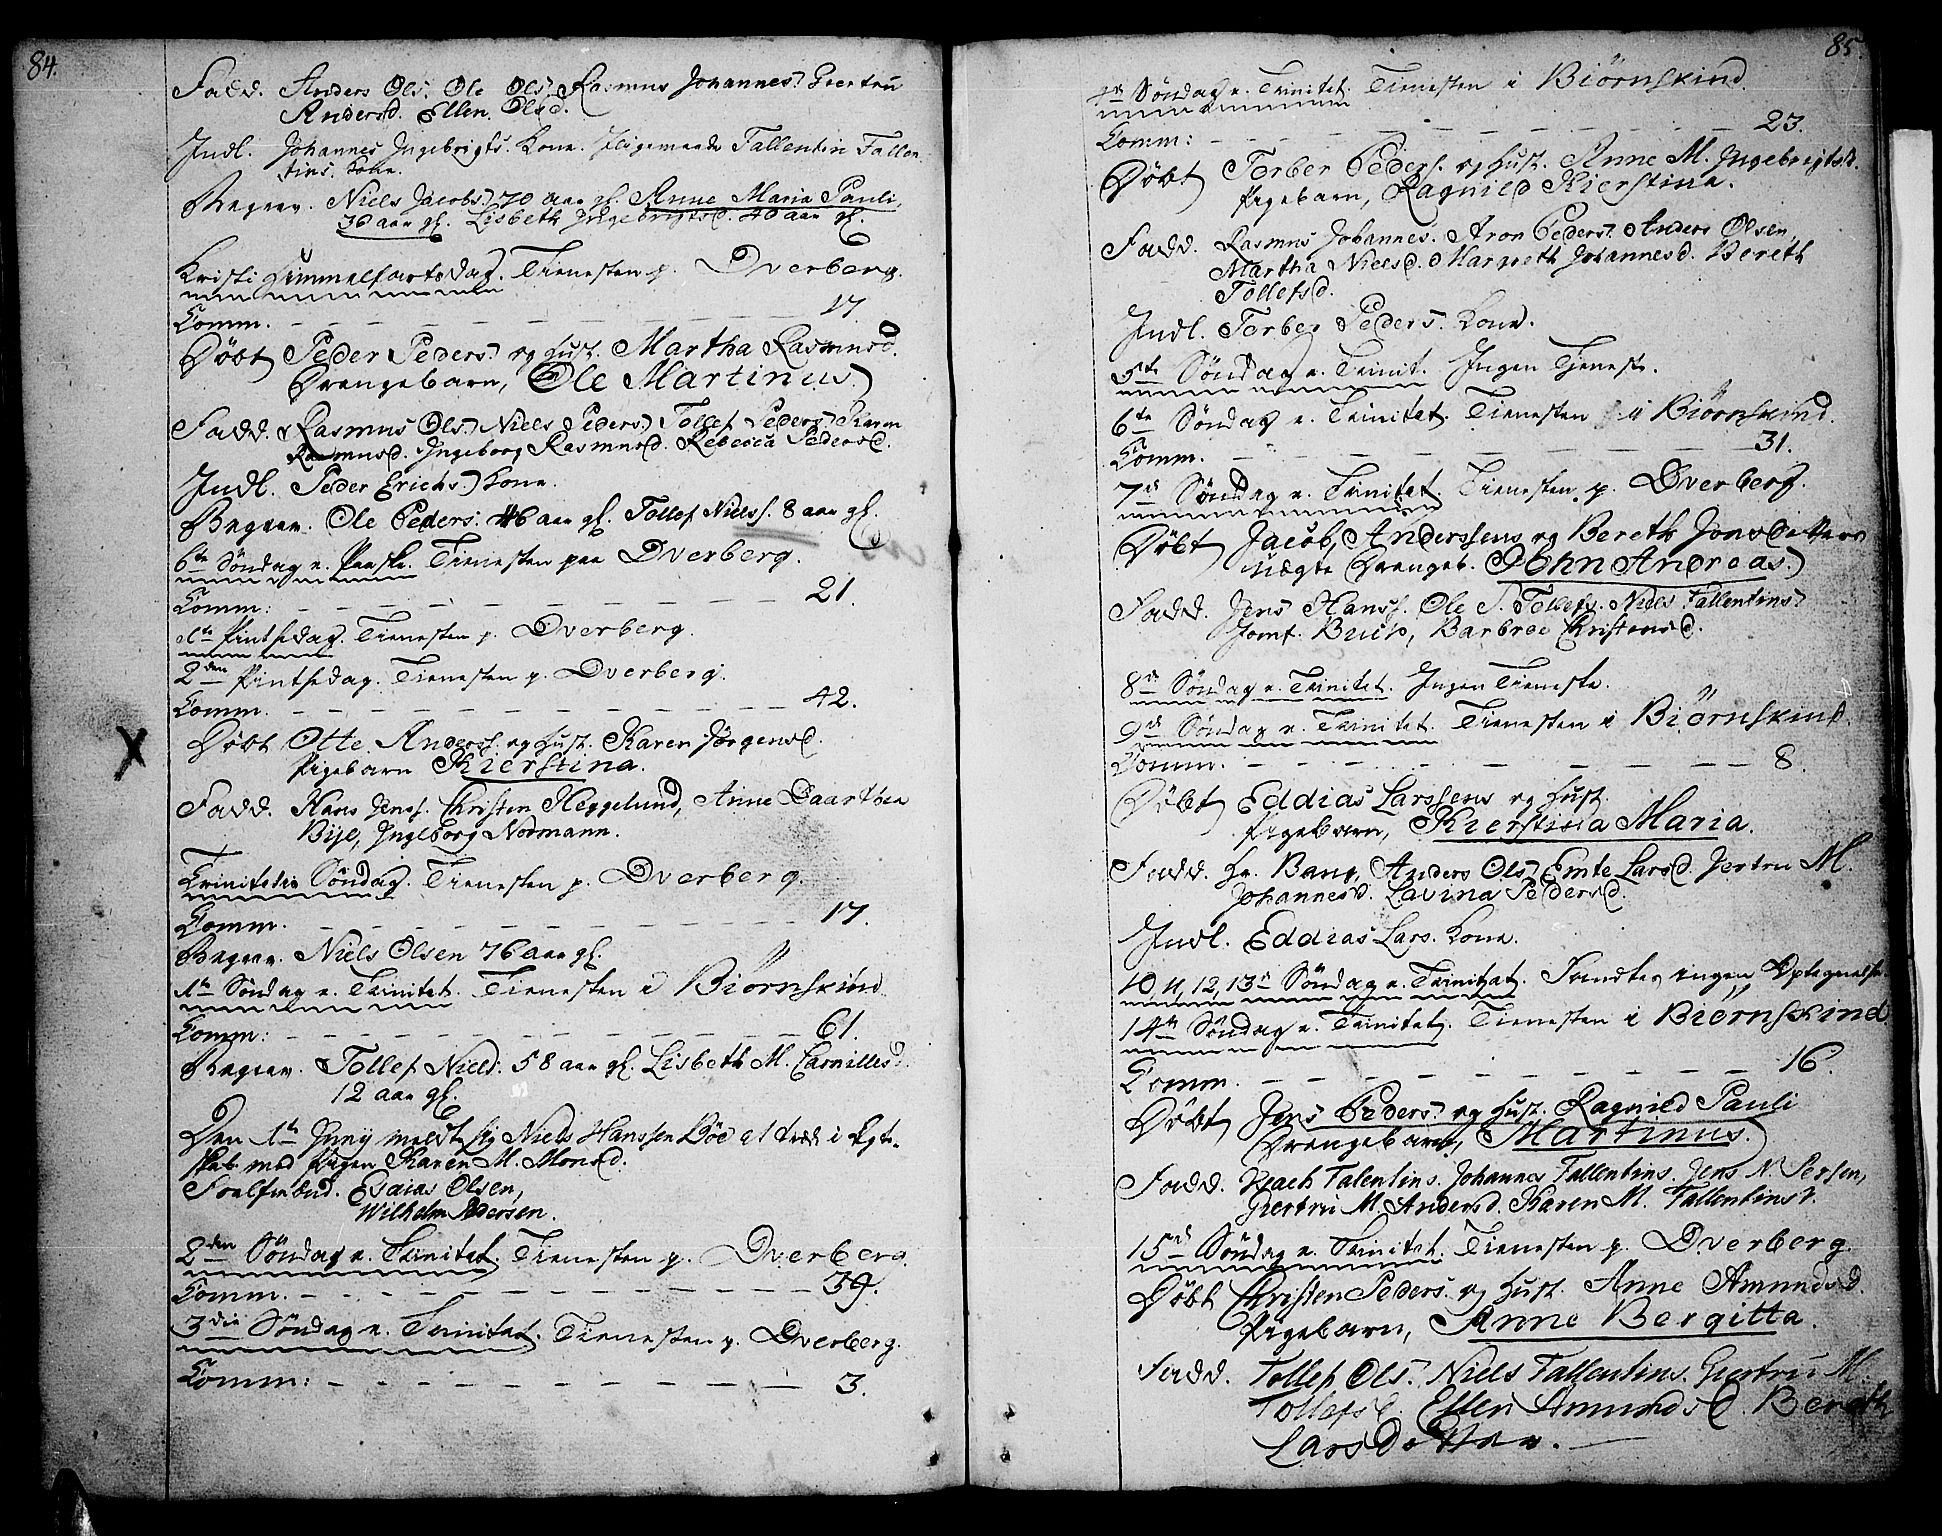 84.
Fadd. Anders Ols. Ole Ols. Rasmus Johannes. Geertru
Andersd. Ellen Olsd.
Indl. Johannes Ingebrigts. Kone. Iligemaade Fallentin Fallen
tins. Kone.
Begrav. Niels Jacobs. 70 aar gl. Anne Maria Pauli,
36 aar gl. Lisbeth Ingebrigtsd. 40 aar gl.
Kristi Himmelfartsdag. Tienesten p. Dverberg.
Comm. 17
Døbt Peder Peders. og Hust. Martha Rasmusd.
Drengebarn, Ole Martinus.
Fadd. Rasmus Ols. Niels Peders. Tollef Peders. Karen
Rasmusd. Ingeborg Rasmusd. Rebecca Pedersd.
Indl. Peder Erichs. Kone.
Begrav. Ole Peders. 46 aar gl. Tollef Niels. 8 aar gl.
6te Søndag e. Paaske. Tienesten paa Dverberg.
Comm: 21.
1te Pintsedag. Tienesten p. Dverberg.
2den Pintsedag. Tienesten p. Dverberg.
Comm. 42.
Døbt Otte Anders. og Hust. Karen Jørgensd.
Pigebarn Kierstina.
Fadd. Hans Jens. Christen Heggelund, Anne Daarthea
Bije, Ingeborg Normann.
Trinitatis Søndag. Tienesten p. Dverberg.
Comm. 17.
Begrav. Niels Olsen 76 aar gl.
1te Søndag e. Trinitat. Tienesten i Biørnskind.
Comm: 61.
Begrav. Tollef Niels. 58 aar gl. Lisbeth M. Carnillesd.
12 aar gl.
Den 1te Junij meldt sig Niels Hanssen Böe at træde i Egte-
skab med Pigen Karen M. Monsd.
Esaias Olsen,
Wilhelm Pedersen.
2den Søndag e. Trinitat. Tienesten p. Dverberg.
Comm. 39.
3die Søndag e. Trinitat. Tienesten p. Dverberg.
Comm: 3.
85.
4de Søndag e. Trinitat. Tienesten i Biørnskind.
Comm: 23.
Døbt Torber Peders. og Hust. Anne M. Ingebrigtsd.
Pigebarn, Ragnild Kierstina.
Fadd. Rasmus Johannes. Aron Peders. Anders Olsen,
Martha Nielsd. Marreth Johannesd. Bereth
Tollefsd.
Indl. Torber Peders. Kone.
5te Søndag e. Trinit. Ingen Tjeneste.
6te Søndag e. Trinitat. Tienesten i Biørnskind.
Comm. 31.
7de Søndag e. Trinitat. Tienesten p. Dverberg.
Døbt Jacob Anderssens og Bereth Jonsdatters
uægte Drengeb. John Andreas.
Fadd. Jens Hans. Ole T. Tollefs. Niels Fallentins.
Jomf. Buck, Barbroe Christensd.
8de Søndag e. Trinitat. Ingen Tieneste.
9de Søndag e. Trinitat. Tienesten i Biørnskind.
Comm. 8.
Døbt Eddias Larssens og Hust.
Pigebarn, Kierstina Maria.
Fadd. Hr. Bang, Anders Ols. Emte Larsd. Jertru M.
Johannesd. Lavina Pedersd.
Indl. Eddias Lars. Kone.
10, 11, 12, 13de Søndag e. Trinitat. Fandtes ingen Optegnelse.
14de Søndag e. Trinitat. Tienesten i Biørnskind
Comm. 16.
Døbt Jens Peders. og Hust. Ragnild Pauli
Drengebarn, Martinus.
Fadd. Isach Talentins. Johannes Fallentins. Jens N Persen,
Giertru M. Andersd. Karen M. Fallentinsd.
15de Søndag e. Trinitat. Tienesten p. Dverberg.
Døbt Christen Peders. og Hust. Anne Amundsd.
Pigebarn, Anne Bergitta.
Fadd. Tollef Ols. Niels Fallentins. Giertru M.
Tollefsd. Ellen Amundsd. Bereth
Larsdatter.